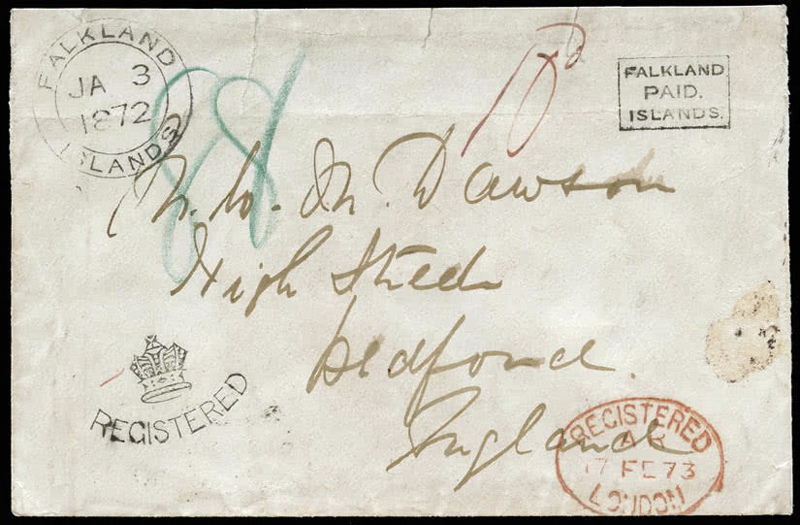 FALKLAND
JA 3
1872
ISLANDS
88
FALKLAND
PAID.
ISLANDS.
W. M. Dawson
High Street
Bedford.
England
REGISTERED
REGISTERED
17 FE 73
LONDON